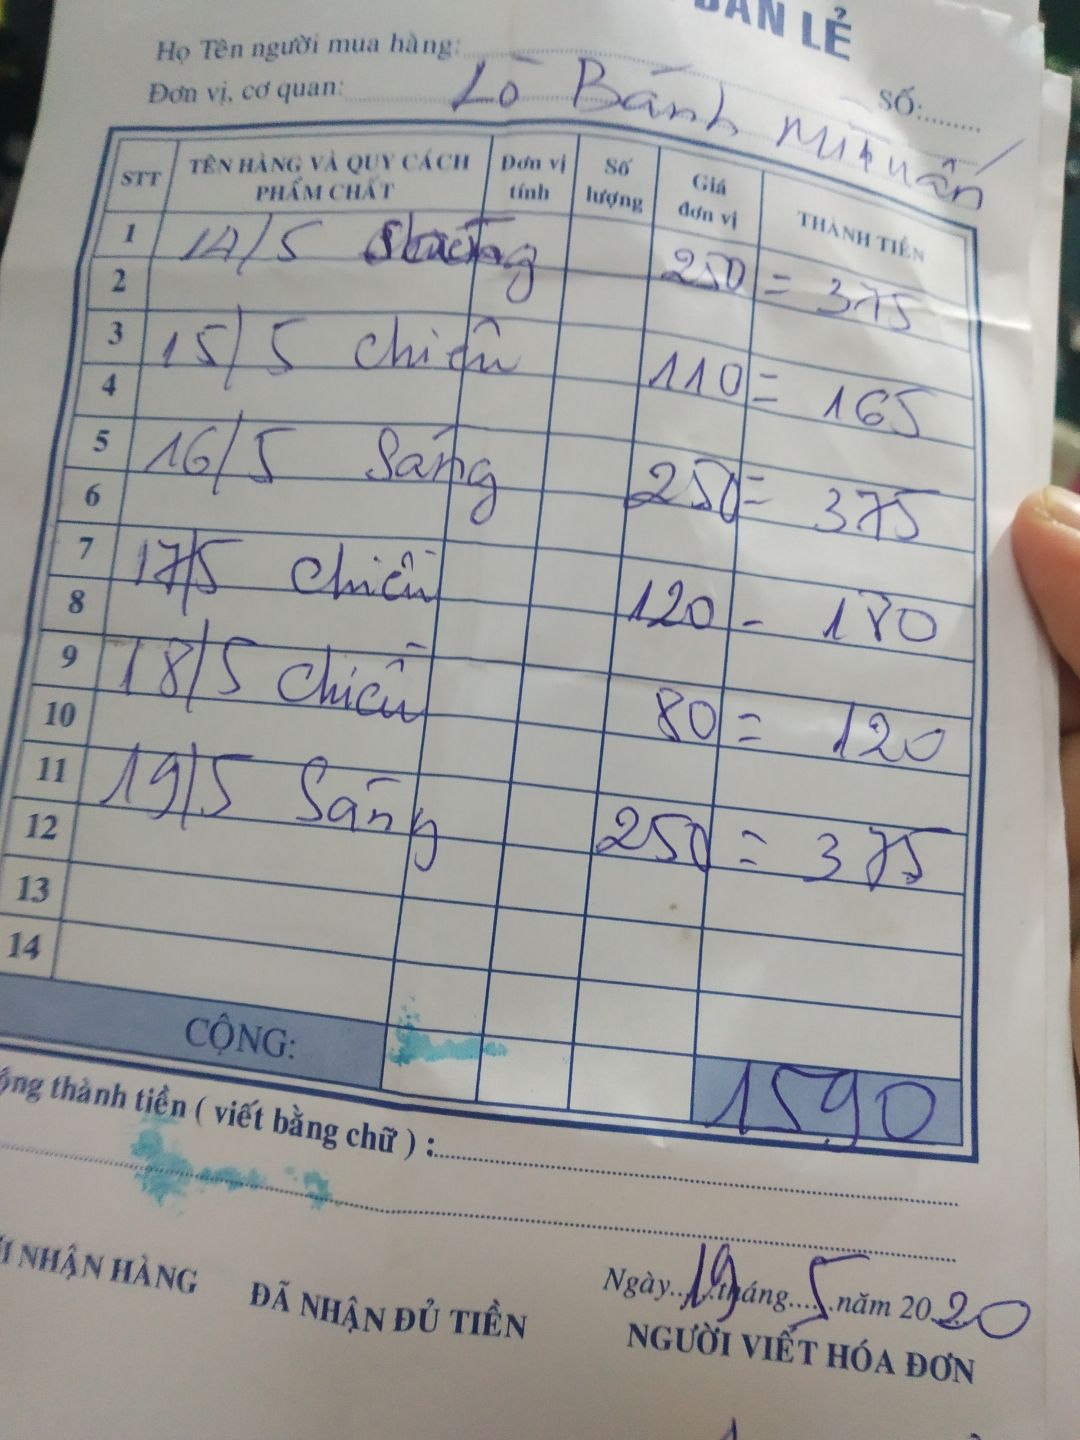 BÁN LẺ
Họ Tên người mua hàng:
Đơn vị, cơ quan: Lò Bánh Mì Tuấn
SỐ:
STT TÊN HÀNG VÀ QUY CÁCH PHẨM CHẤT Đơn vị tính Số lượng Giá đơn vị THÀNH TIỀN
1 14/5 Sáng 250 = 375
2
3 15/5 chiều 110 = 165
4
5 16/5 Sáng 250 = 375
6
7 17/5 chiều 120 - 180
8
9 18/5 chiều 80 = 120
10
11 19/5 Sáng 250 = 375
12
13
14
CỘNG: 1590
ộng thành tiền ( viết bằng chữ ) :
NHẬN HÀNG ĐÃ NHẬN ĐỦ TIỀN
Ngày 19 tháng 5 năm 2020
NGƯỜI VIẾT HÓA ĐƠN